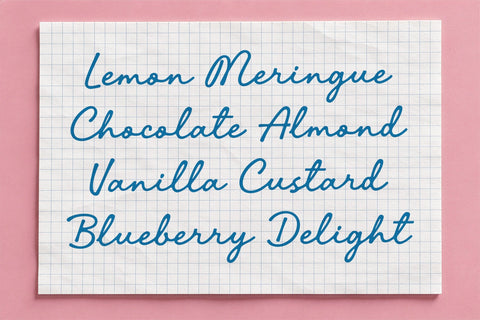 Lemon Meringue
Chocolate Almond
Vanilla Custard
Blueberry Delight